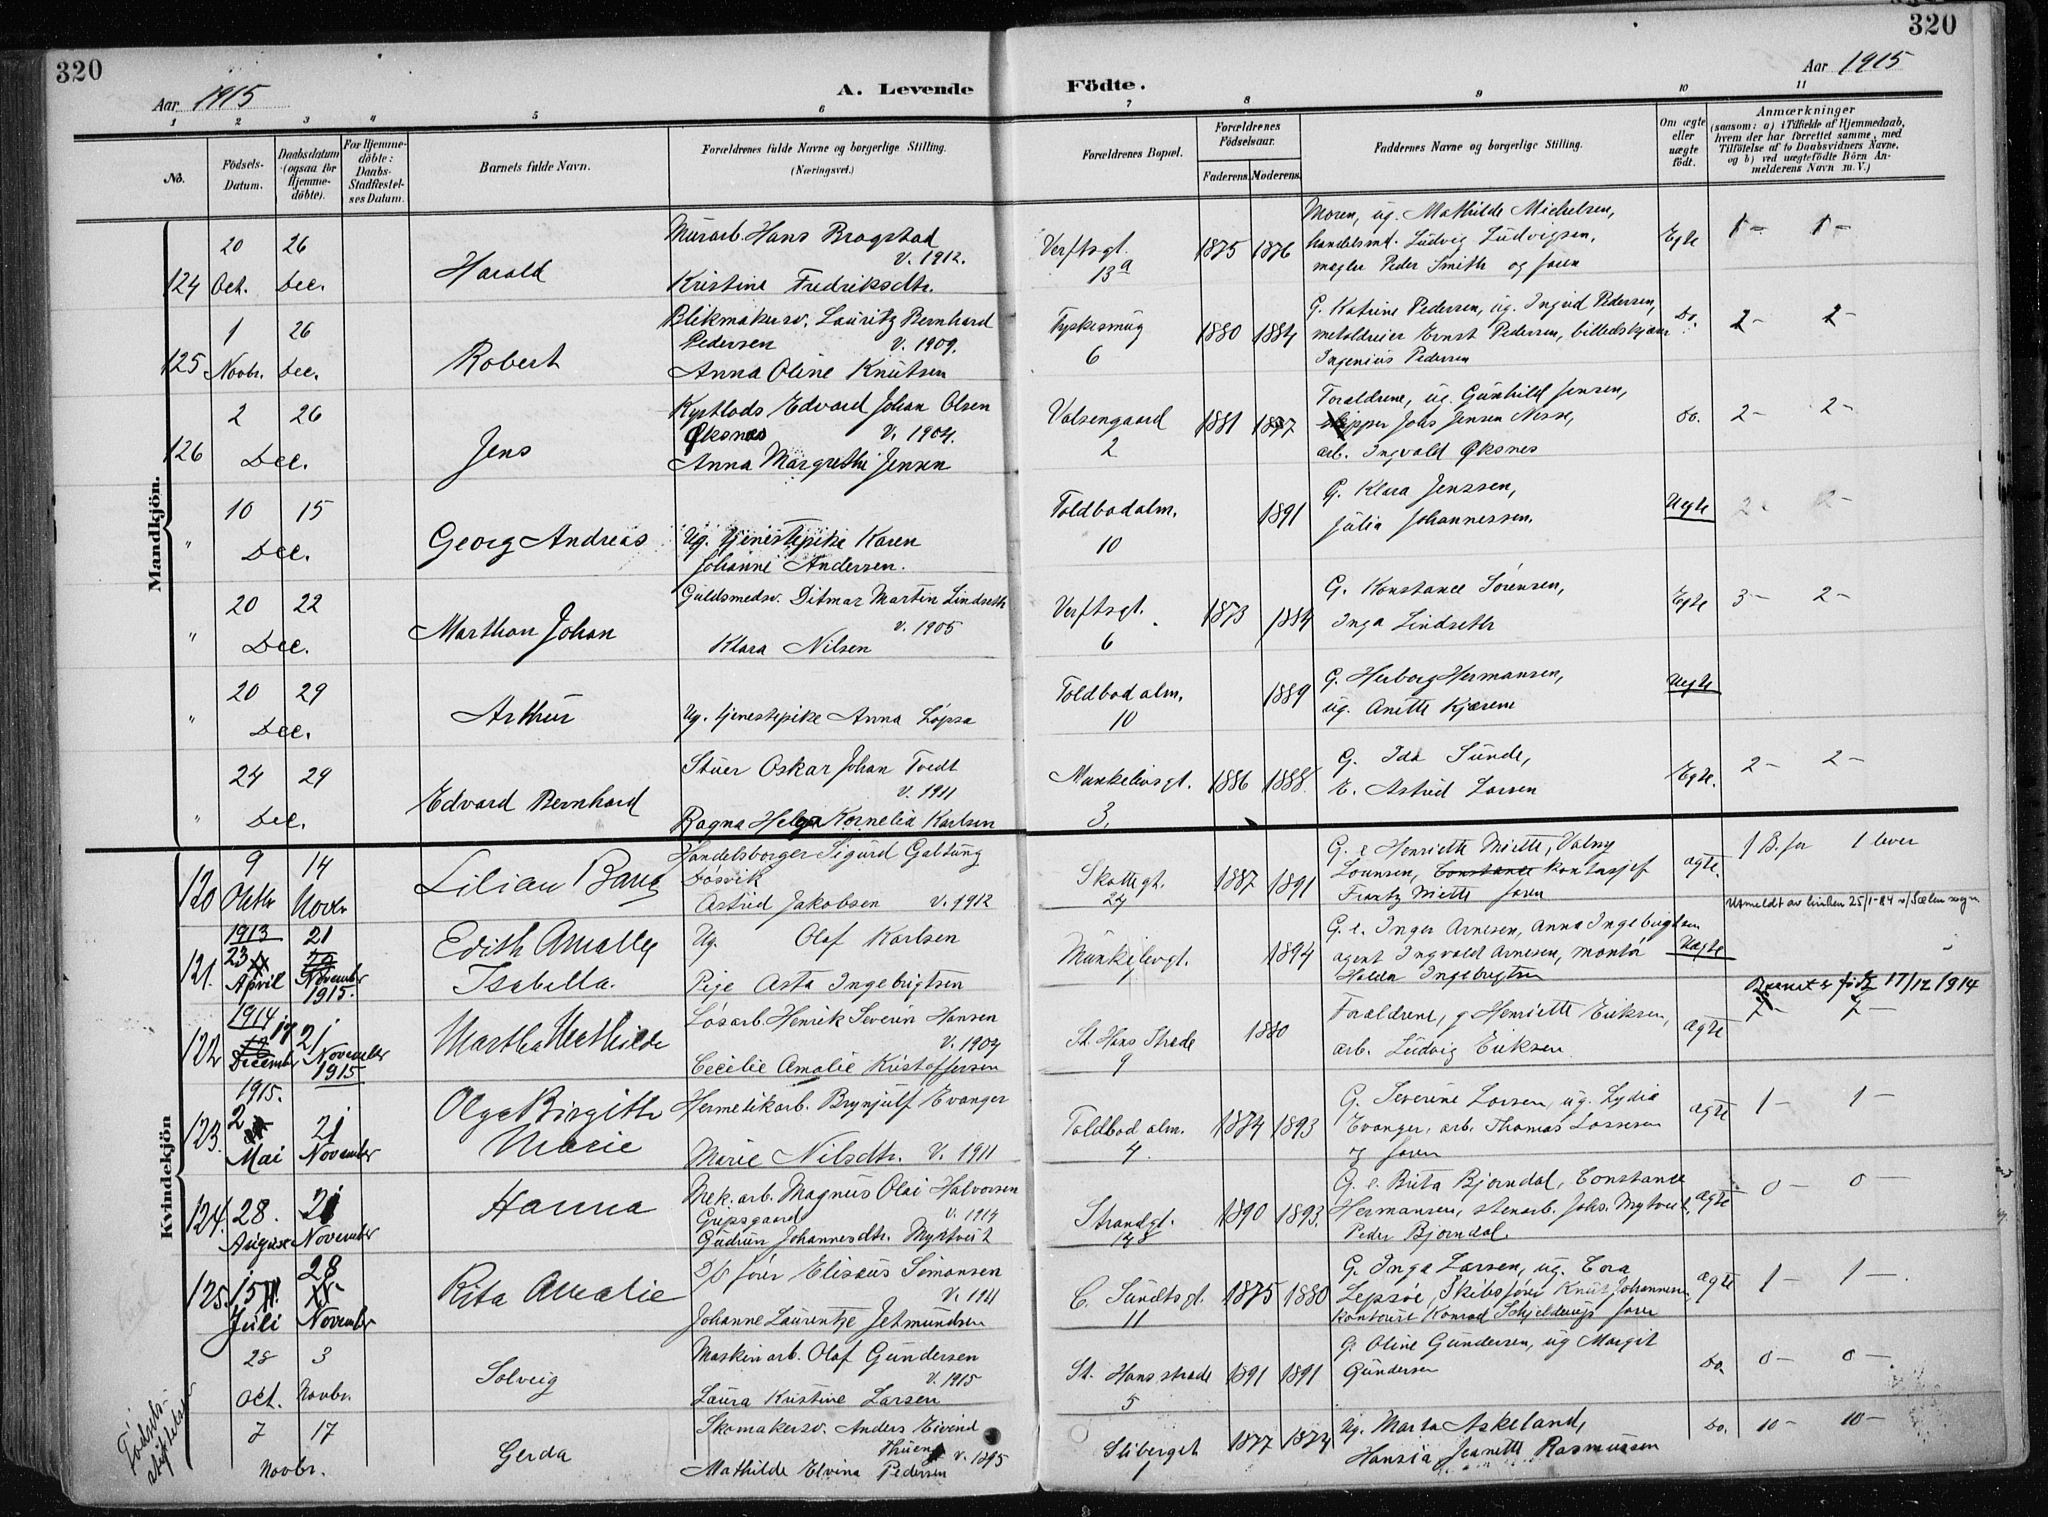 320
320
Aar 1915
A. Levende
Födte.
Aar 1915
1 2 3 4 5 6 7 8 9 10 11
No.
Födsels-Datum.
Daabsdatum (ogsaa for Hjemmedöbte).
For Hjemmedöbte: Daabs-Stadfæstelses Datum.
Barnets fulde Navn.
Forældrenes fulde Navne og borgerlige Stilling.
(Næringsvei.)
Forældrenes Bopæl.
Forældrenes Födselsaar.
Faderens. Moderens.
Faddernes Navne og borgerlige Stilling.
Om ægte eller uægte födt.
Anmærkninger
(saasom: a) i Tilfælde af Hjemmedaab, hvem der har forrettet samme, med Tilföielse af to Daabsvidners Navne. og b) ved uægtefödte Börn Anmelderens Navn m. V.)
Mandkjön.
124 20 Oct. 26 Dec. Harald
Murarb. Hans Brogstad v. 1912.
Kristine Fredriksdtr.
Verftsgt. 13a 1875 1876
Moren, ug. Mathilde Michelsen,
handelsmd. Ludvig Ludvigsen,
megler Peder Smith og faren
Egte
125 1 Novbr. 26 Dec. Robert
Blikmakersv. Lauritz Bernhard
Pedersen v. 1909.
Anna Oline Knutsen
Tyskesmug 6 1880 1884
G. Katrine Pedersen, ug. Ingrid Pedersen,
metaldreier Ernst Pedersen, billedskjær
Ingenius Pedersen
Do. 2 - 2 -
126 2 26 Dec. Jens
Kystlods Edvard Johan Olsen
Øksnes v. 1904.
Anna Margrethe Jensen
Valsengaard 2 1881
Forældrene, ug. Gunhild Jensen,
skipper Johs Jensen Nesse,
arb. Ingvald Øksnes
Do. 2 - 2 -
" 10 15 Dec. Georg Andreas
Ug. tjenestepike Karen
Johanne Andersen.
Toldbodalm. 10 1891
G. Klara Jenssen,
Julia Johannessen.
Uegte 2 - 2 -
" 20 22 Dec. Marthon Johan
Guldsmedsv. Ditmar Martin Lindseth
v. 1905
Klara Nilsen
Verftsgt. 6 1873 1884
G. Konstance Sørensen,
Inga Lindseth
Egte 3 - 2 -
" 20 29 Dec. Arthur
Ug. tjenestepike Anna Løpsa
Toldbodalm. 10 1889
G. Herborg Hermansen,
ug. Anette Kjærem
Uegte
" 24 29 Dec. Edvard Bernhard
Stuer Oskar Johan Tvedt
v. 1911
Ragna Helga Kornelia Karlsen
Munkelivsgt. 3. 1886 1888.
G. Ida Sunde,
E. Astrid Larsen
Egte. 2 - 2 -
Kvindekjön
120 9 Oktbr 14 Novbr Lilian Bang
Handelsborger Sigurd Galtung
Døsvik
Astrid Jakobsen v. 1912
Skottegt. 24 1887 1891
G. e Henriette Miette, Valny
Lounsen, Constance kontorsjef
Frantz Miette faren
ægte. 1 B. før 1 lever
Utmeldt av kirken 25/1-84 v/ Sælen sogn
121. 1913 23 April 21 November 1915. Edith Amally
Isabella.
Ug. Olaf Karlsen
Pige Asta Ingebrigtsen
Munkelivgt. 1 1894
G. e. Inger Arnesen, Anna Ingebrigtsen
agent Ingvald Arnesen, montør
Halda Ingebrigtsen
Uægte
Barnet er født 17/12 1914
122 1914 17 December 21 November 1915 Martha Mathilde
Løsarb. Henrik Severin Hansen
v. 1904
Cecilie Amalie Kristoffersen
St. Hans Stræde 9 1880
Forældrene, g Henriette Eriksen,
arb. Ludvig Eriksen
ægte 7 - 7 -
123. 1915. 2 Mai 21 November Olga Birgitte
Marie
Hermetikarb. Brynjulf Evanger
Marie Nilsdtr. v. 1911
Toldbod alm. 4. 1874 1893
G. Severine Larsen, ug. Lydia
Evanger, arb. Thomas Lossesen
og faren
ægte 1 - 1 -
124. 28. August 21 November Hanna
Mek. arb. Magnus Olai Halvorsen
Gripsgaard v. 1914
Gudrun Johannesdtr. Myrtveit
Strandgt. 1890 1893.
G. e. Brita Bjørndal, Constance
Hermansen, stenarb. Johs. Myrtveit,
Peder Bjørndal.
ægte 0 - 0 -
125. 15 Juli 28 November Rita Amalie
S/S fører Elisæus Simonsen
v. 1911
Johanne Laurentze Jetmundsen
C. Sundtsgt. 11 1875 1880
G. Inga Larsen, ug. Cora
Lepsøe, Skibsfører Knut Johannesen,
kontorist Konrad Schjelderup faren
ægte 1 - 1 -
28 Oct. 3 Novbr. Solveig
Maskinarb. Olaf Gundersen
v. 1915
Laura Kristine Larsen
St. Hansstræde 5 1891 1891
G. Oline Gundersen, ug Margit
Gundersen
Do. 0 - 0 -
7 17 Novbr. Gerda
Skomakersv. Anders Eivind
Thuen v. 1895
Mathilde Elvina Pedersen
Sliberget 1877 1874
Ug. Marta Askeland,
Hansia Jeanette Rasmussen
Do. 10 - 10 -
Fødsels-
stiftelsen